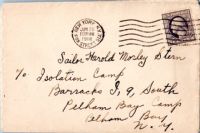 NEW YORK, N.Y.
Sailor Harold Morley Stern
To Isolation Camp
Barracks I 9, South
Pelham Bay Camp
Pelham Bay
N.Y.